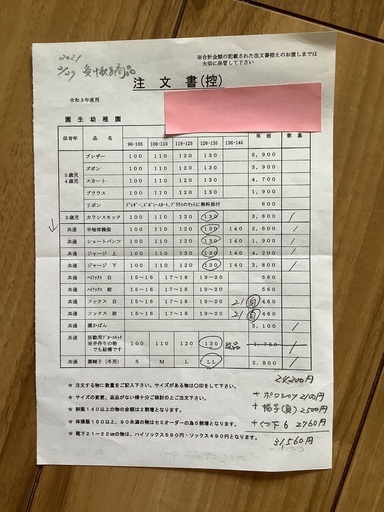 2021
2/27
※合計金額の記載された注文書控えのお渡しまでは
大切に保管して下さい
注 文 書(控)
令和3年度用
園生幼稚園
保育年 品 名 96-105 106-115 116-125 126-135 136-145 単 価 数 量
5歳児
4歳児
ブレザー 100 110 120 130 5,900
ズボン 100 110 120 130 5,000
スカート 100 110 120 130 4,700
ブラウス 100 110 120 130 1,900
リボン 600
3歳児 カラシスモック 100 110 120 130 3,800 /
共通 半袖体操服 100 110 120 130 140 /
共通 ショートパンツ 100 110 120 130 140 1,900 /
共通 ジャージ 上 100 110 120 130 140 4,200 /
共通 ジャージ 下 100 110 120 130 140 3,800 /
共通 ハイソックス 白 15~16 17~18 19~20 560
共通 ハイソックス 紺 15~16 17~18 19~20 560
共通 ソックス 白 15~16 17~18 19~20 21 460
共通 ソックス 紺 15~16 17~18 19~20 21 460
共通 園かばん 5,100 /
共通 ※手作りの物
でも結構です 130 /
共通 園帽子(冬用) S M L LL 2,800 /
★ 注文する物に数量をご記入下さい。サイズがある物は○印をして下さい。
★ サイズの変更、返品がない様十分ご検討の上ご注文下さい。
★ 制服140以上の物の金額は2割増となります。
★ 体操服150以上、90央満の物はセミオーダーの為5割増となります。
★ 靴下21~22cmの物は、ハイソックス590円・ソックス490円となります。
24,200円
+ポロシャツ 2100円
+帽子(夏) 2500円
+くつ下6 2760円
31,560円